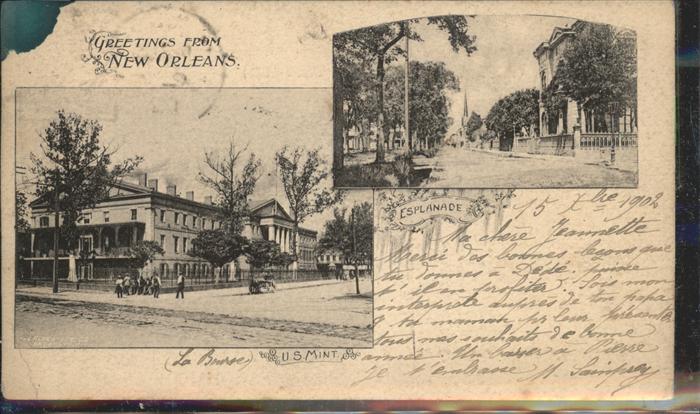 GREETINGS FROM
NEW ORLEANS.
ESPLANADE
15 Xbre 1902
Ma chère Jeannette
Merci des bonnes leçons que
tu donnes à Dédé, puisse
t'il en profiter. Sois mon
interprète auprès de ton papa
ta maman pr leur présenter
tous mes souhaits de bonne
année. Un baiser à Pierre
Je t'embrasse M.
(La Bourse)
U.S. MINT.